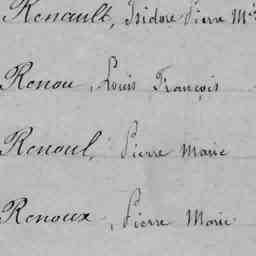 Renault, Isidore Pierre M.ie
Renou, Louis François
Renoul, Pierre Marie
Renoux, Pierre Marie